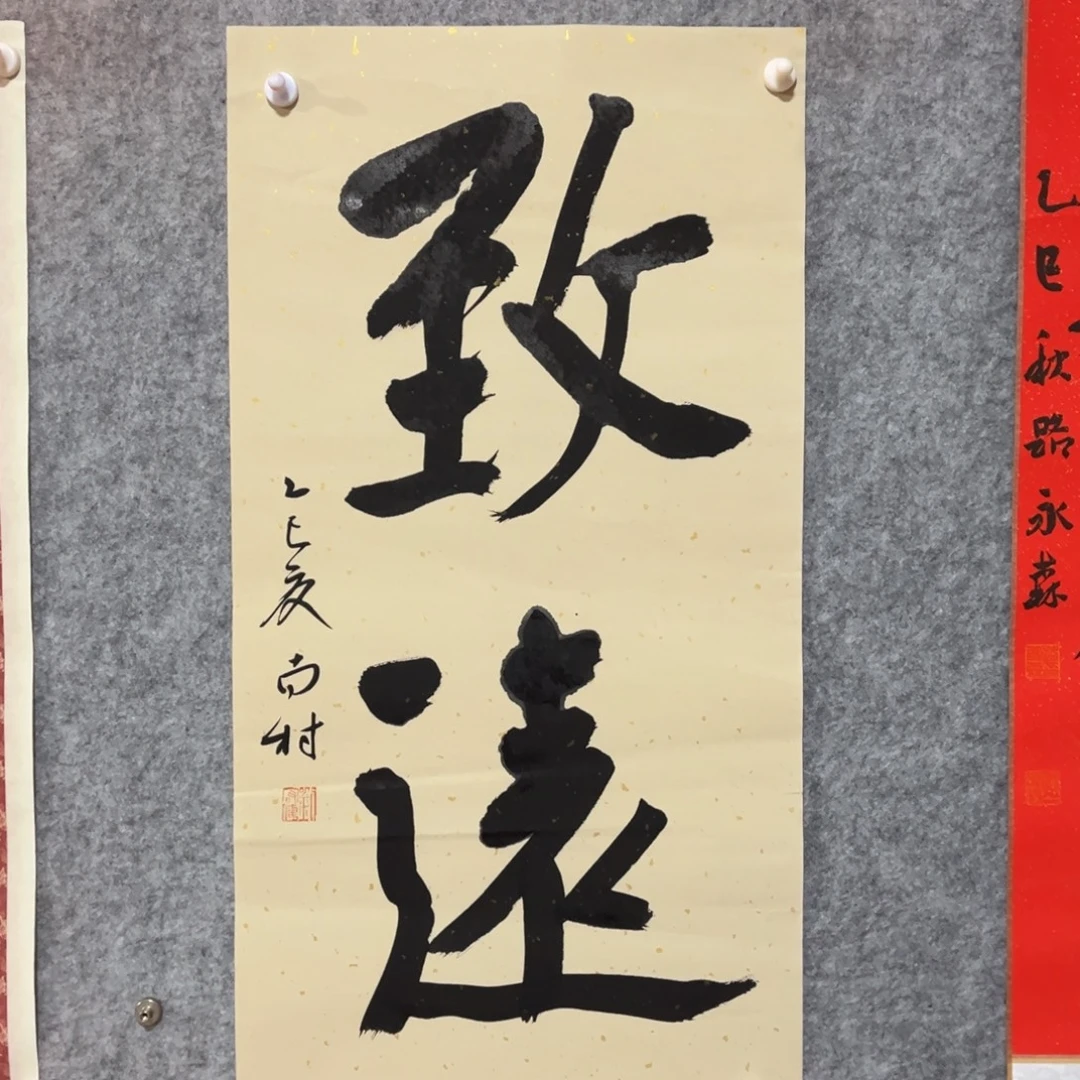 致遠
乙巳夏 尚村
乙巳秋路永森